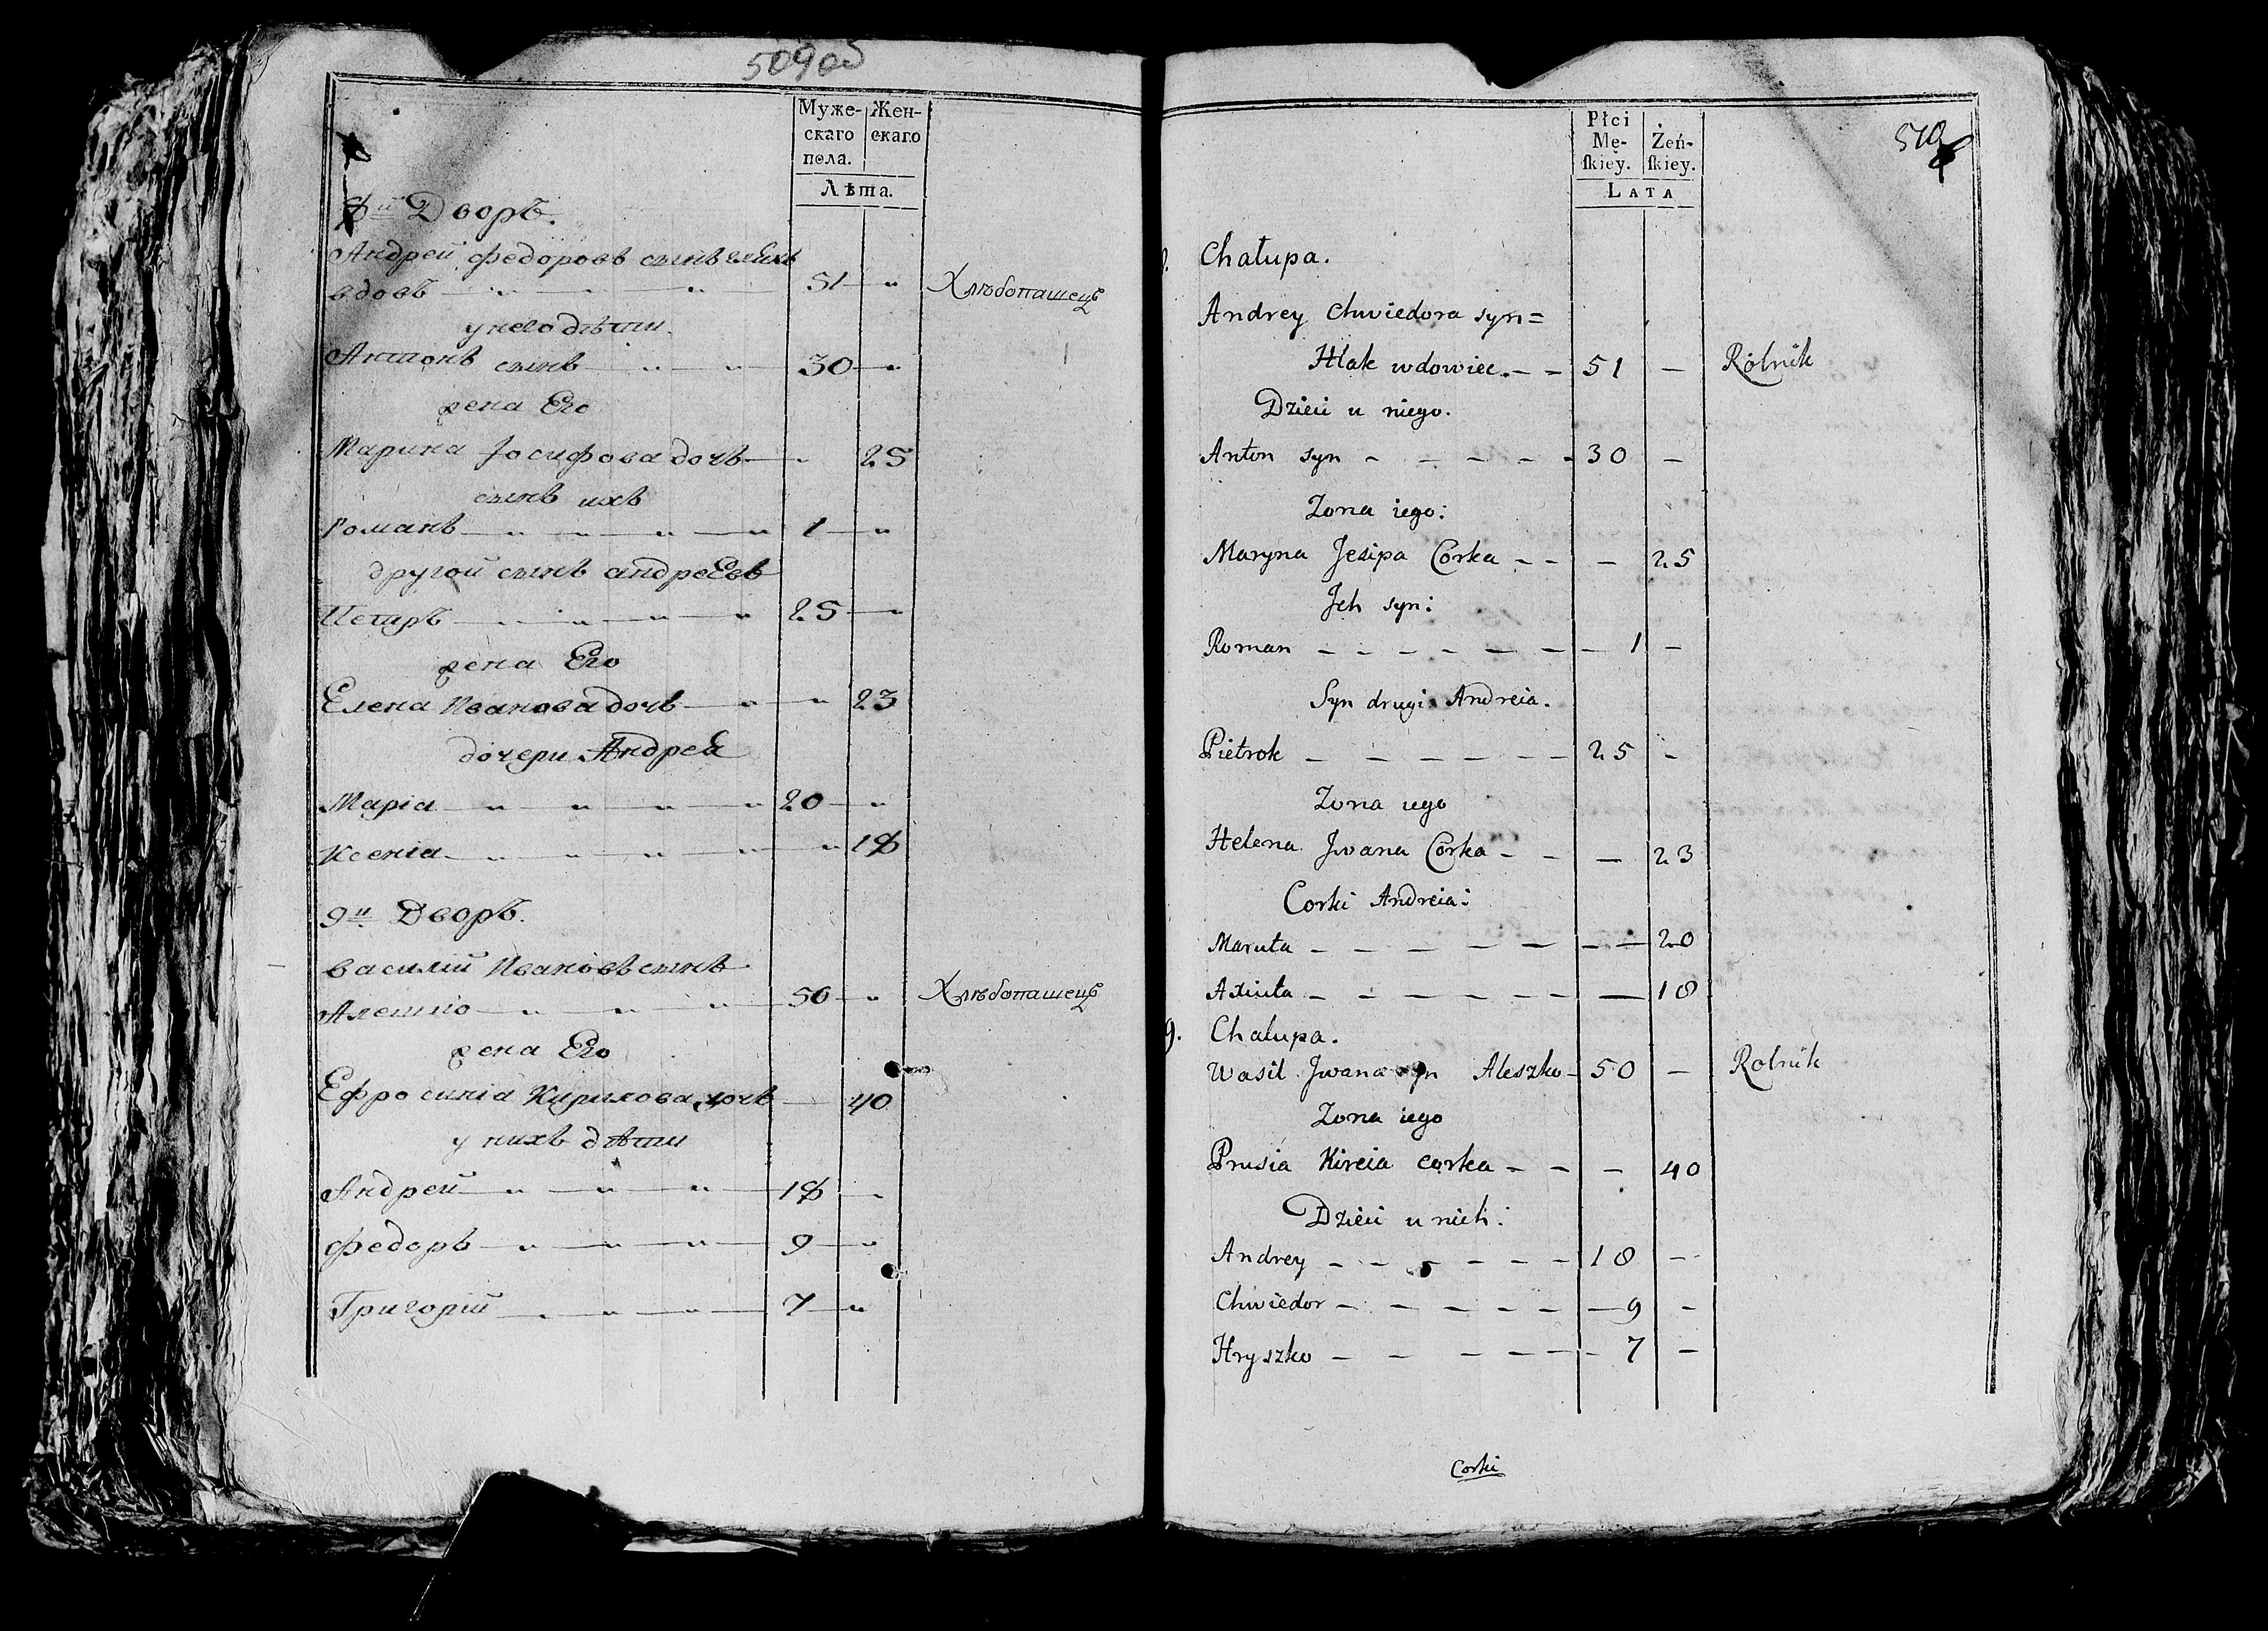 509об
Муже-
скаго
пола.
Жен-
скаго
Лѣта.
8й Дворъ.
Андрей Федоровъ сынъ
вдовъ 51 Хлѣбопашецъ
у него дѣти
Антонъ сынъ 30
жена Его
Марина Іосифова дочь 25
сынъ ихъ
Романъ 1
другой сынъ андреевъ
Петръ 25
жена Его
Елена Иванова дочь 23
дочери Андрея
Маріа 20
Ксеніа 18
9й Дворъ.
василій Ивановъ сынъ
Алешко 50 Хлѣбопашецъ
жена Его
Ефросиніа Кирилова дочь 40
у нихъ дѣти
Андрей 18
Федоръ 9
Григорій 7
510
Płci
Mę-
ſkiey.
Żeń-
ſkiey.
LATA
Chałupa.
Andrey Chwiedora syn =
Hlak wdowiec. – – 51 – Rolnik
Dzieci u niego.
Anton syn – – – – – 30 –
Zona iego:
Maryna Jesipa Corka – – – 25
Jch syn:
Roman – – – – – – – 1 –
Syn drugi Andreia.
Pietrok – – – – – – 25 –
Zona iego
Helena Jwana Córka – – – 23
Corki Andreia:
Maruta – – – – – – – 20
Axiuta – – – – – – – 18
9. Chałupa.
Wasil Jwana syn Aleszko – 50 – Rolnik
Zona iego
Prusia Kireia corka – – – 40
Dzieci u nich:
Andrey – – – – – – 18 –
Chwiedor – – – – – – – 9 –
Hryszko – – – – – – 7 –
Corki